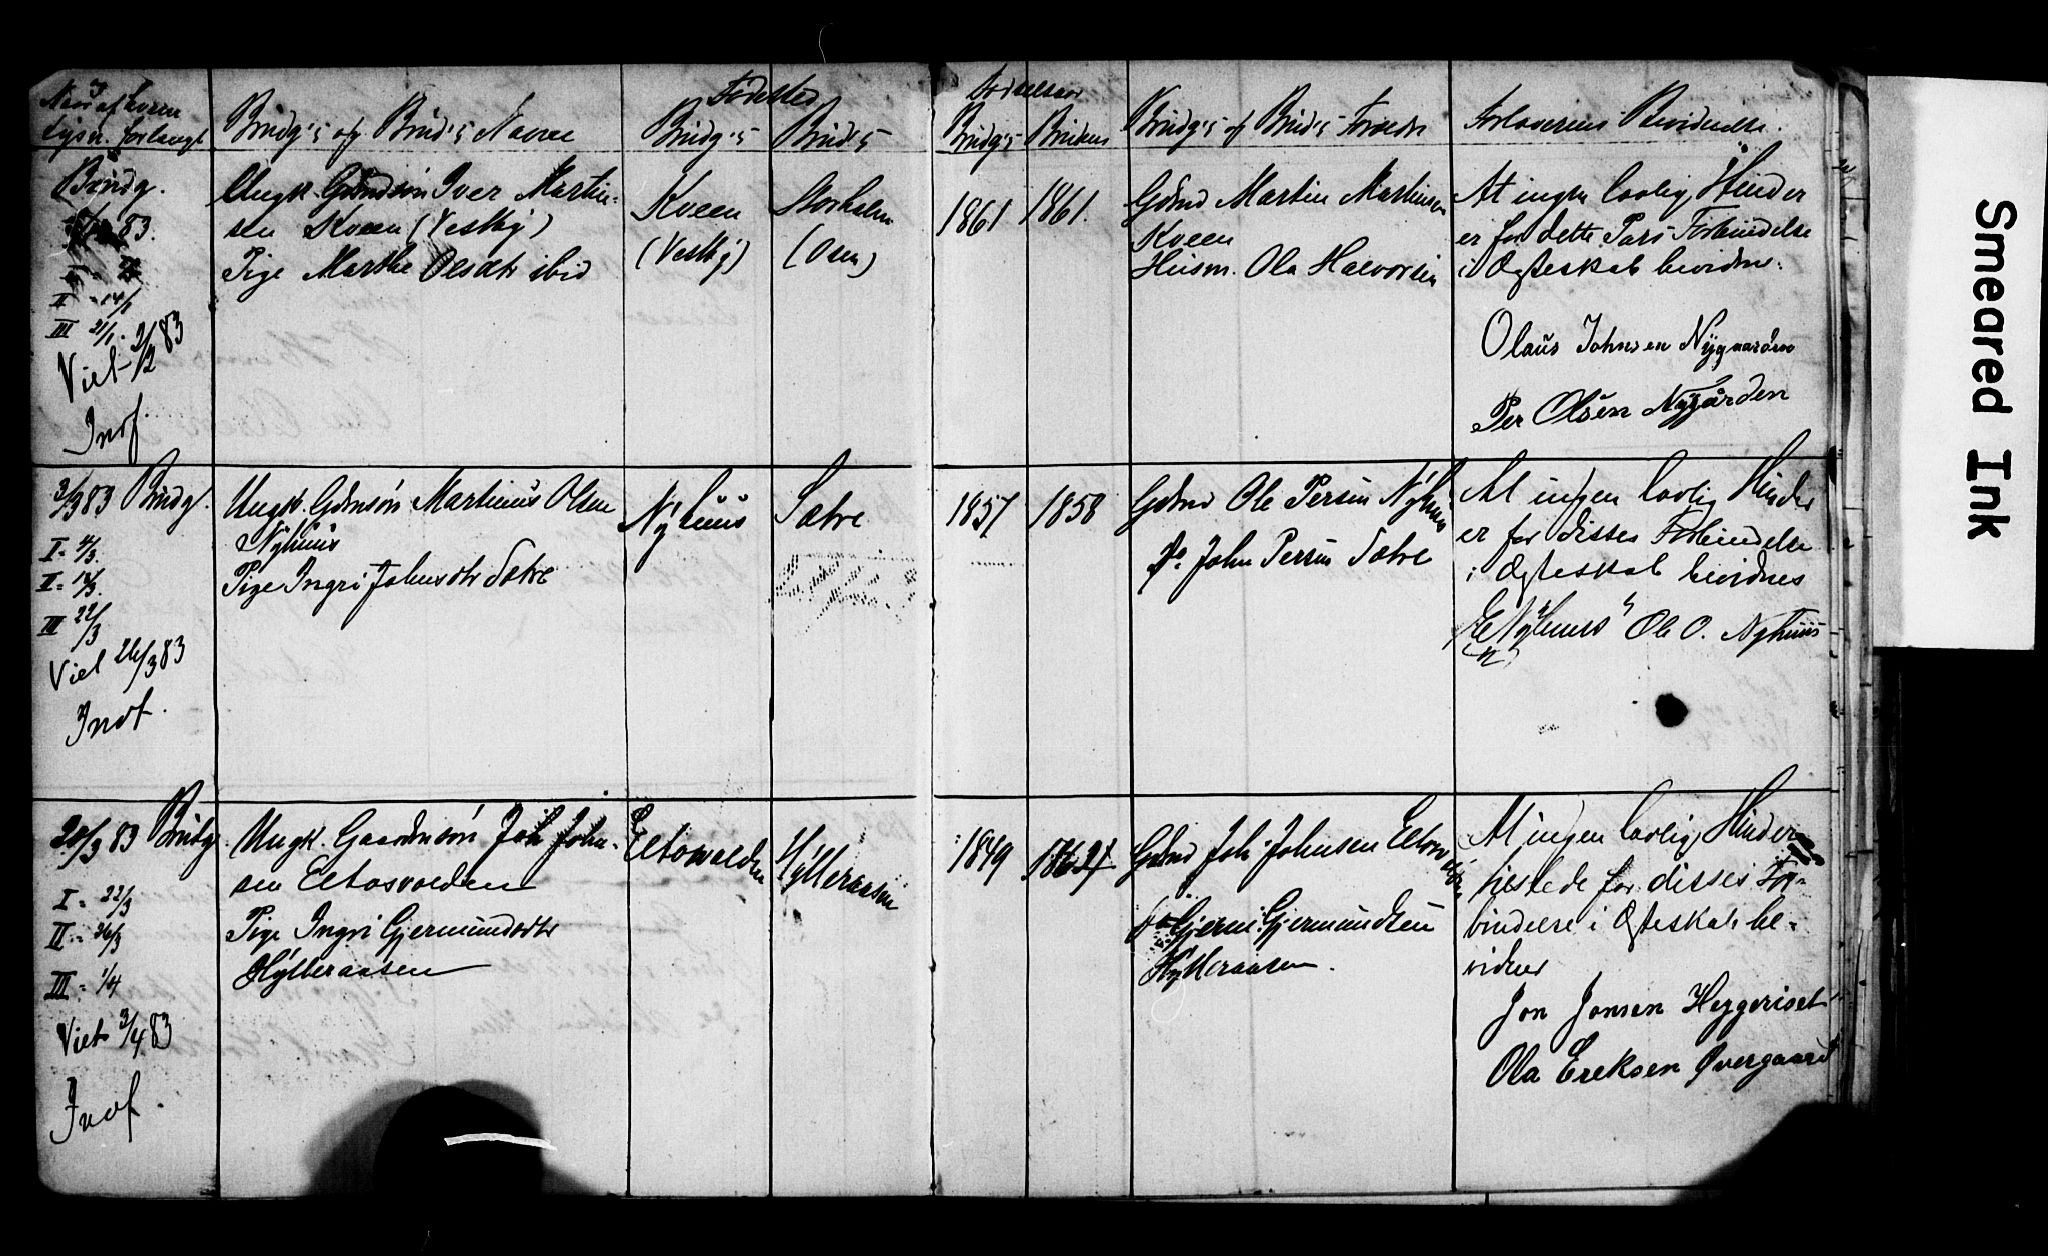 Naar af hvem
Lysn. forlangt
Brudg's og Brud's Navne
Fødested
Brudg's
Brud's
Fødselsaar
Brudg's
Brudens
Brudg's og Brud's Forældre
Forloverens Bevidnelse.
Brudg.
83.
II = 14/1
III 21/1.
Viet 2/2 83
Inof.
Ungk. Gdmdsøn Iver Martin-
sen Kveen (Vestby)
Pige Marthe Olsdtr ibid
Kveen
(Vestby)
Storholm
(Osen)
1861
1861.
Gdmd Martin Martinsen
Kveen
Husm. Ola Halvorsen
At ingen lovlig Hinder
er for dette Pars Forbindelse
i Ægteskab bevidne:
Olaus Johnsen Nygaarden
Per Olsen Nygården
3/3 83 Brudg.
I = 4/3.
II = 18/3.
III 22/3
Viet 26/3 83
Inof.
Ungk. Gdmsøn Martinus Olsen
Nyhuus
Pige Ingri Johnsdtr Sætre
Nyhuus
Sætre
1857
1858
Gdmd Ole Persen Nyhuus
do John Persen Sætre
At ingen lovlig Hinder
er for disses Forbindelse
i Ægteskab bevidnes
E Nyhuus Ole O. Nyhuus
20/3 83 Brudg.
I = 22/3
II = 26/3
III = 1/4
Viet 3/4 83
Inof.
Ungk. Gaardmsøn Joh John-
sen Eltosvolden
Pige Ingri Gjermundsdtr
Hylleraasen
Eltosvolden
Hylleraasen
1849
Gdmd Joh. Johnsen Eltosvolden
do Gjerm. Gjermundsen
Hylleraasen.
At ingen lovlig Hinder
tilstede for disses For-
bindelse i Ægteskab be-
vidner
Jon Jonsen Heggeriset
Ola Ereksen Øvergaard
Smeared Ink